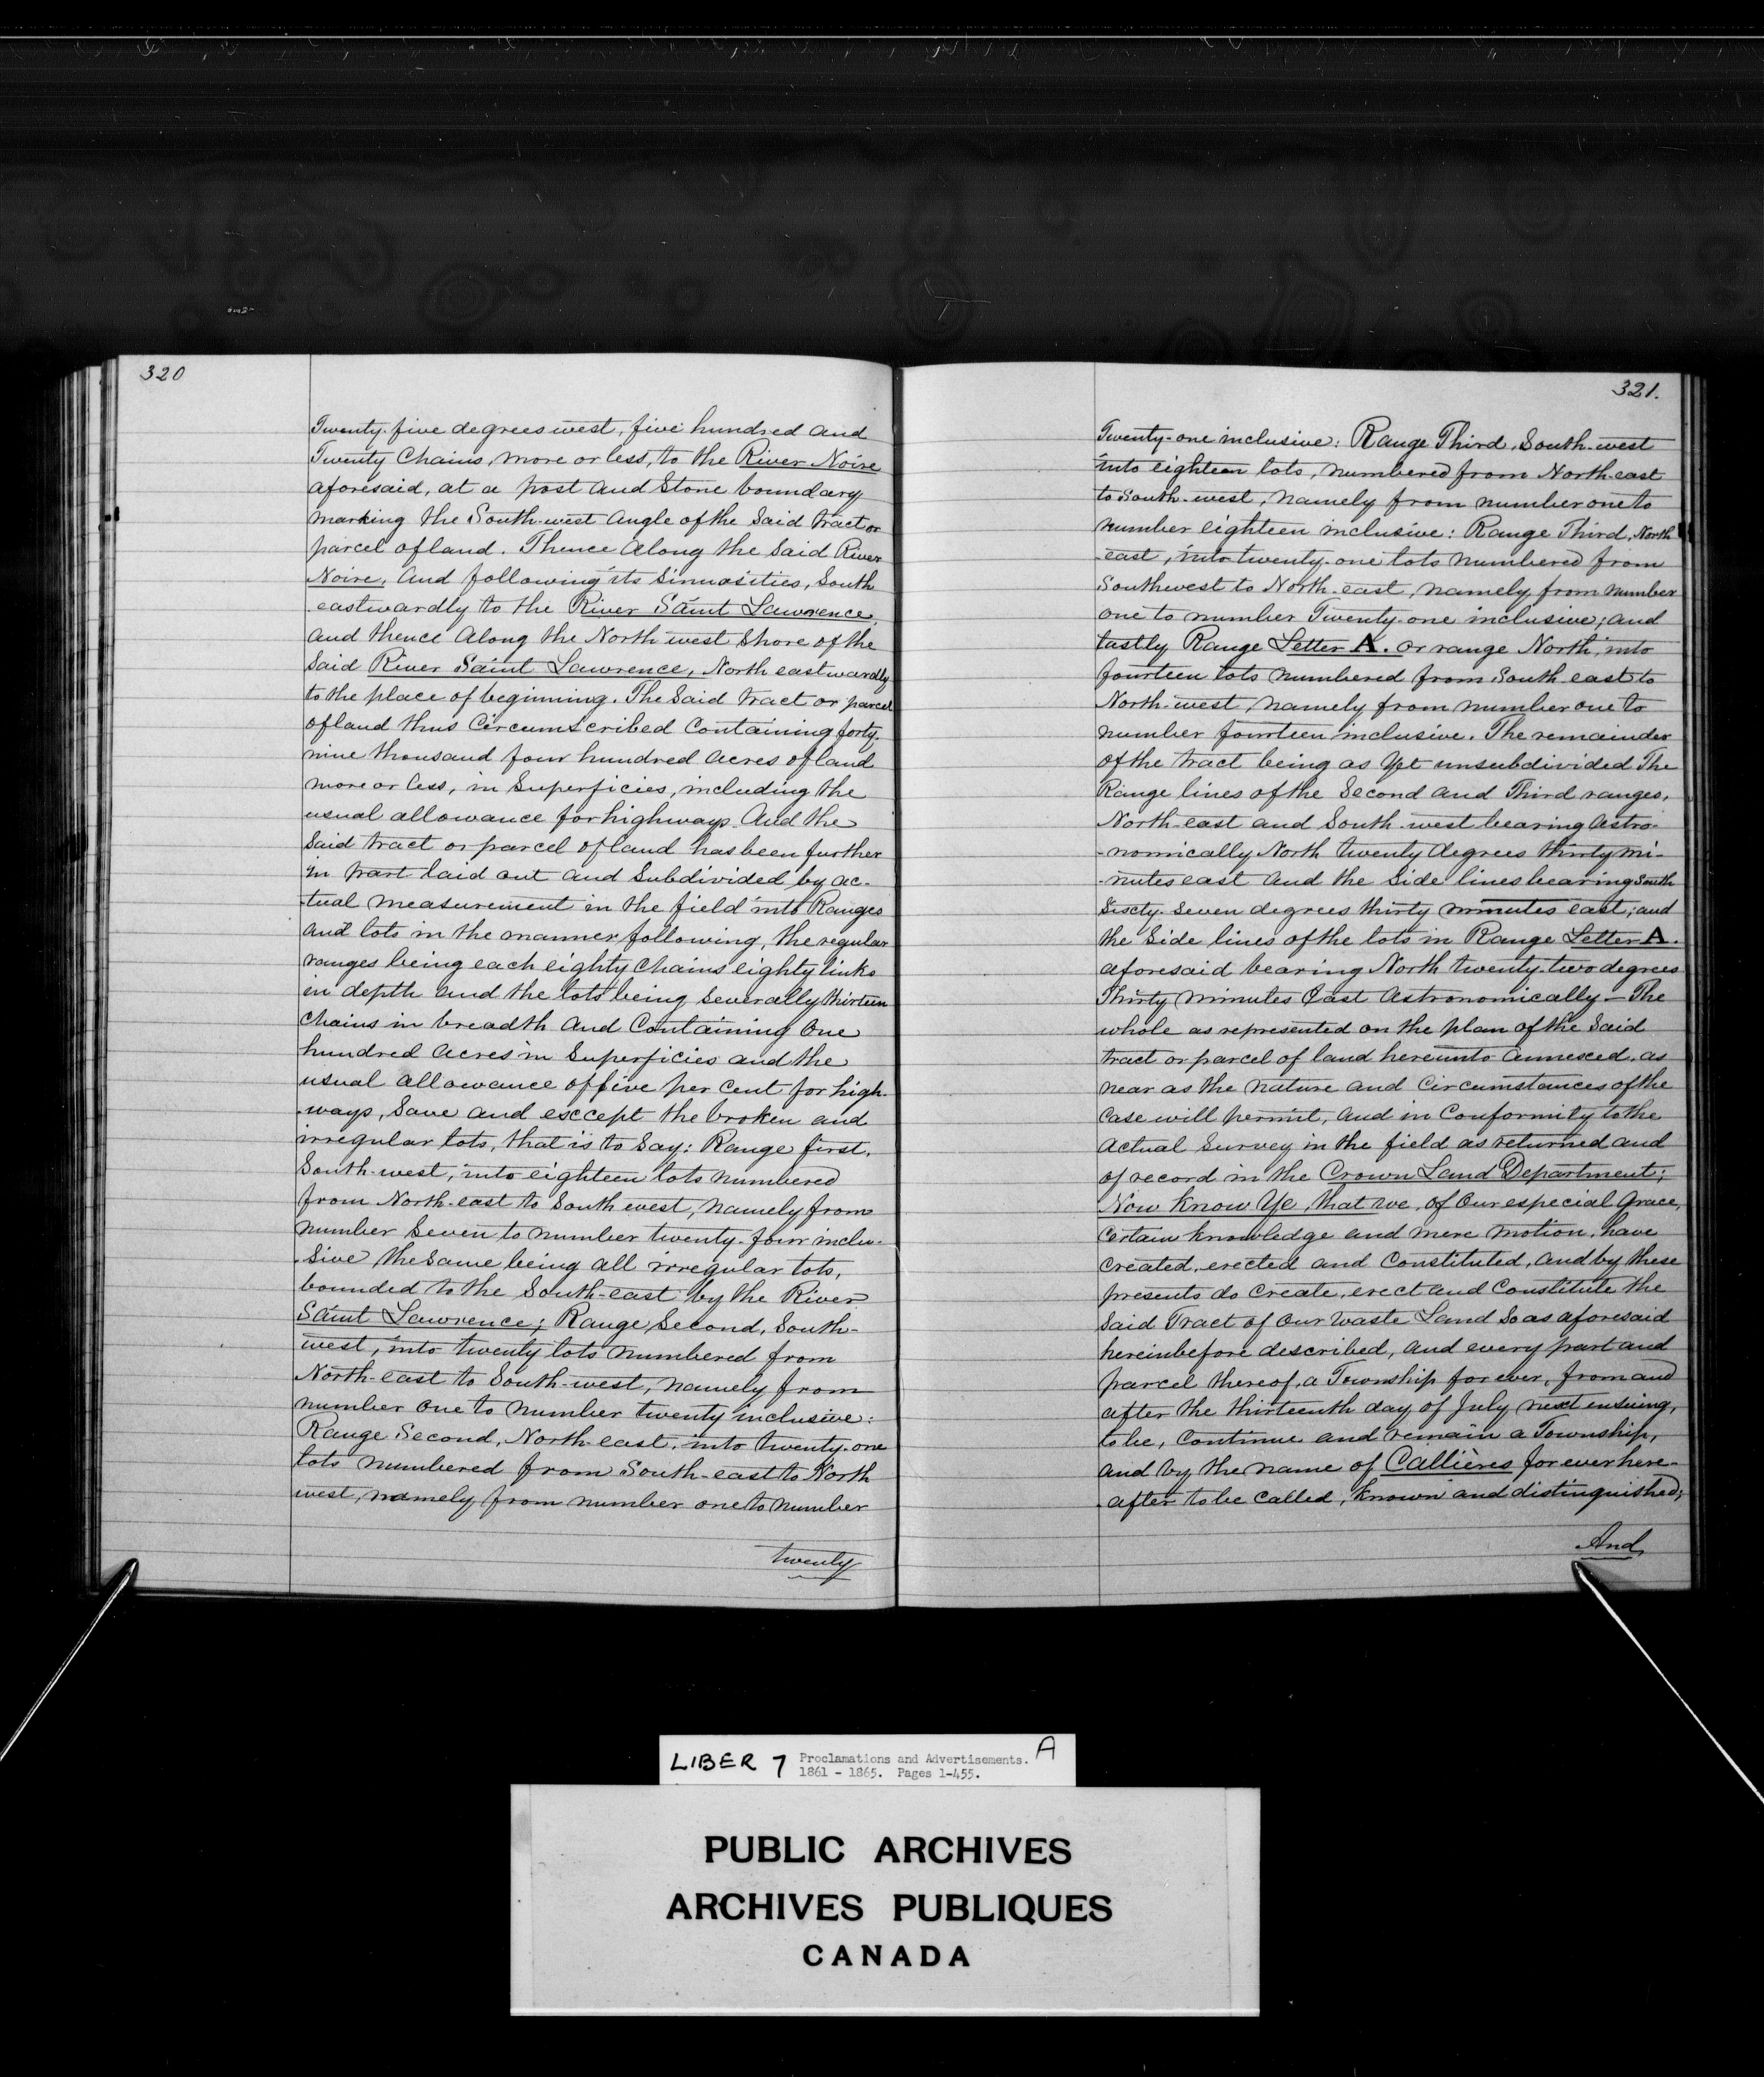 320
Twenty-five degrees west, five hundred and
Twenty Chains, more or less, to the River Noire
aforesaid, at a post and Stone boundary
marking the South-west Angle of the Said tract or
parcel of land. Thence Along the Said River
Noire, And following its Sinuosities, South
-eastwardly to the River Saint Lawrence,
and thence Along the North west Shore of the
Said River Saint Lawrence, North eastwardly
to the place of beginning. The Said tract or parcel
of land thus Circumscribed Containing forty-
nine thousand four hundred acres of land
more or less, in Superficies, including the
usual allowance for highways. And the
Said tract or parcel of land has been further
in part laid out and Subdivided by ac-
-tual measurement in the field into Ranges
and lots in the manner following, the regular
ranges being each eighty Chains eighty links
in depth and the lots being Severally thirteen
Chains in breadth And Containing One
hundred Acres in Superficies and the
usual allowance of five per Cent for high-
-ways, Save and except the broken and
irregular lots, that is to Say: Range first,
South-west, into eighteen lots numbered
from North-east to South west, namely from
number Seven to number twenty-four inclu-
-sive, the Same being all irregular lots,
bounded to the South-east by the River
Saint Lawrence; Range Second, South-
west, into twenty lots numbered from
North-east to South-west, namely from
number One to number twenty inclusive:
Range Second, North-east, into twenty-one
lots numbered from South-east to North
west, namely from number one to number
twenty
321.
Twenty-one inclusive: Range Third, South-west
into eighteen lots, numbered from North-east
to South-west, namely from number one to
number eighteen inclusive: Range Third, North
-east, into twenty-one lots numbered from
Southwest to North-east, namely from number
one to number Twenty-one inclusive; and
lastly Range Letter A. or range North, into
fourteen lots numbered from South east to
North-west, namely from number one to
number fourteen inclusive. The remainder
of the tract being as Yet unsubdivided The
Range lines of the Second and Third ranges,
North-east and South-west bearing Astro-
-nomically North twenty degrees thirty mi-
-nutes east and the Side lines bearing South
Sixty-Seven degrees thirty minutes east; and
the Side lines of the lots in Range Letter A.
aforesaid bearing North twenty-two degrees
Thirty minutes East Astronomically — The
whole as represented on the plan of the Said
tract or parcel of land hereunto annexed, as
near as the nature and Circumstances of the
Case will permit, and in Conformity to the
Actual Survey in the field as returned and
of record in the Crown Land Department;
Now Know Ye, that we, of Our especial Grace,
Certain knowledge and mere motion, have
Created, erected and Constituted, and by these
presents do Create, erect and Constitute the
Said Tract of Our Waste Land So as aforesaid
hereinbefore described, and every part and
parcel thereof, a Township for ever, from and
after the thirteenth day of July next ensuing,
to be, Continue and remain a Township,
And by the name of Callières for ever here-
-after to be called, Known and distinguished;
And
LIBER 7 Proclamations and Advertisements. A
1861 - 1865. Pages 1-455.
PUBLIC ARCHIVES
ARCHIVES PUBLIQUES
CANADA